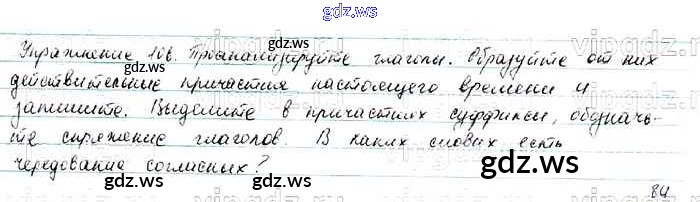 gdz.ws
Упражнение 106. Проанализируйте глаголы. Образуйте от них
gdz.ws gdz.ws
действительные причастия настоящего времени и
запишите. Выделите в причастиях суффиксы, обозначь-
те спряжение глаголов. В каких словах есть
gdz.ws
чередование согласных?
gdz.ws gdz.ws
84